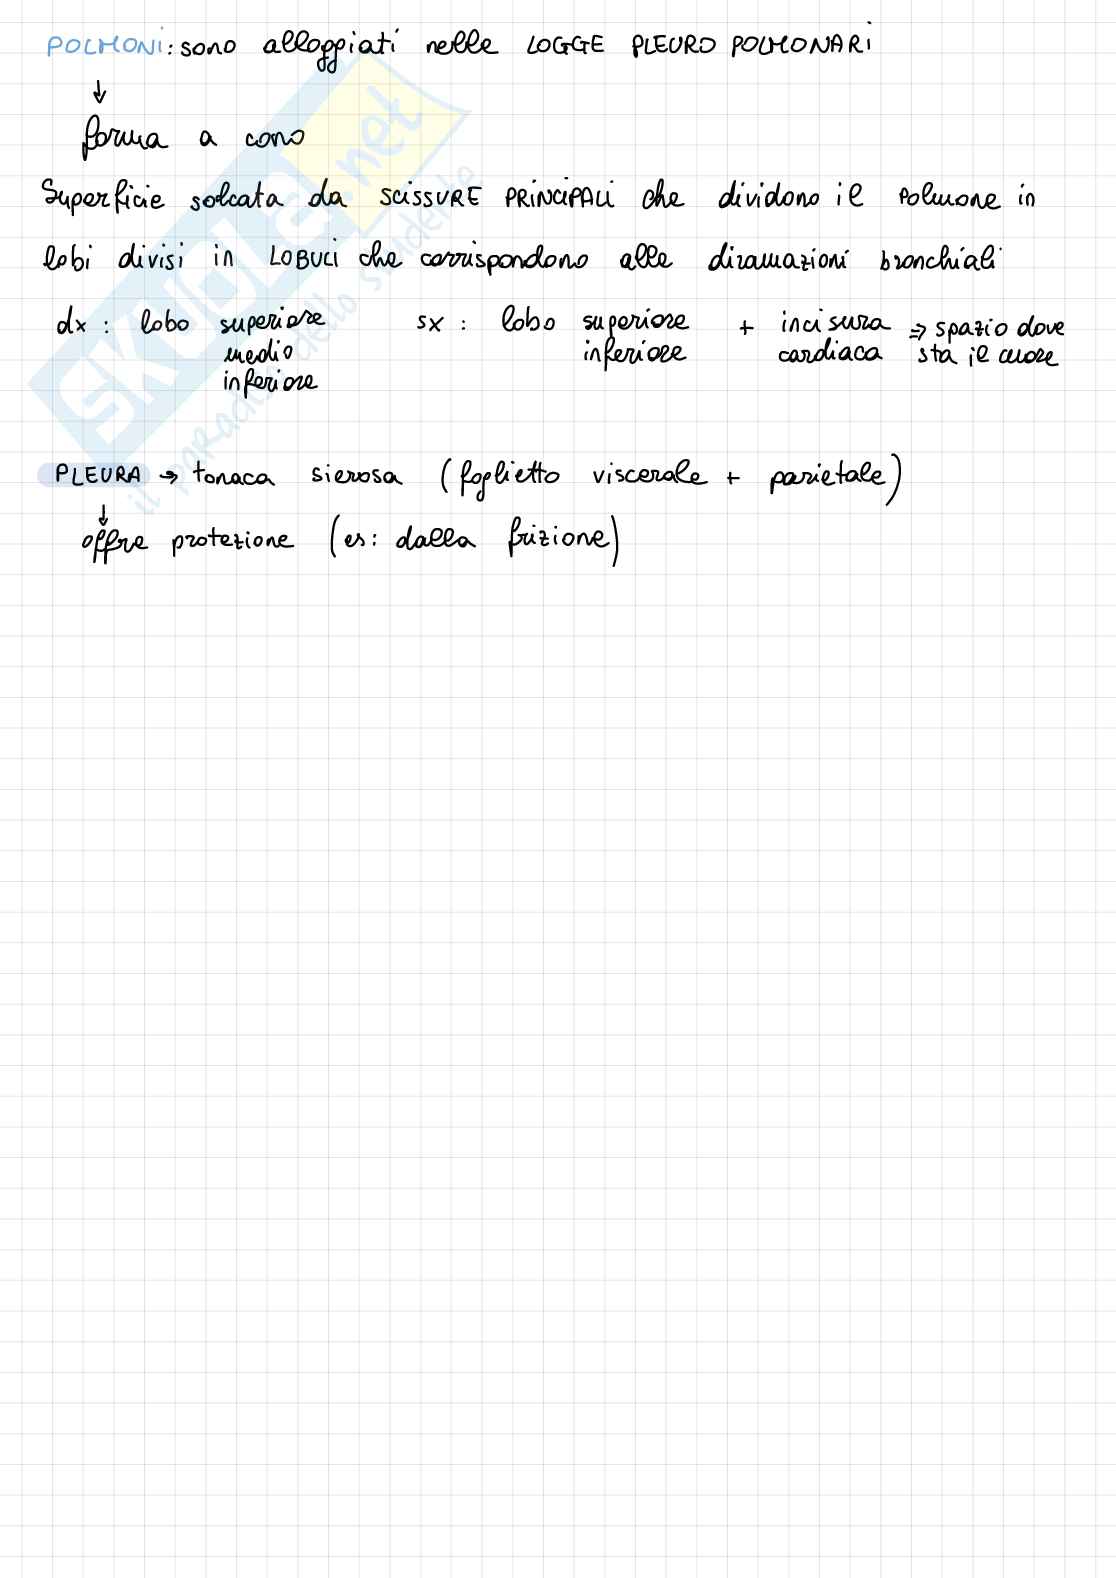 POLMONI: sono alloggiati nelle LOGGE PLEURO POLMONARI
↓
forma a cono
Superficie solcata da SCISSURE PRINCIPALI che dividono il Polmone in
lobi divisi in LOBULI che corrispondono alle diramazioni bronchiali
dx: lobo superiore sx: lobo superiore + incisura ⇒ spazio dove
medio inferiore cardiaca sta il cuore
inferiore
PLEURA → tonaca sierosa (foglietto viscerale + parietale)
↓
offre protezione (es: dalla frizione)
SKUOLA.net
il paradiso dello studente